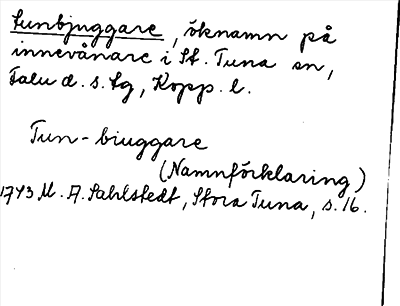 tunbjuggare, öknamn på
innevånare i St. Tuna sn,
Falu d. s. lg, Kopp. l.
Tun-biuggare
(Namnförklaring)
1743 M. A. Sahlstedt, Stora Tuna, s. 16.